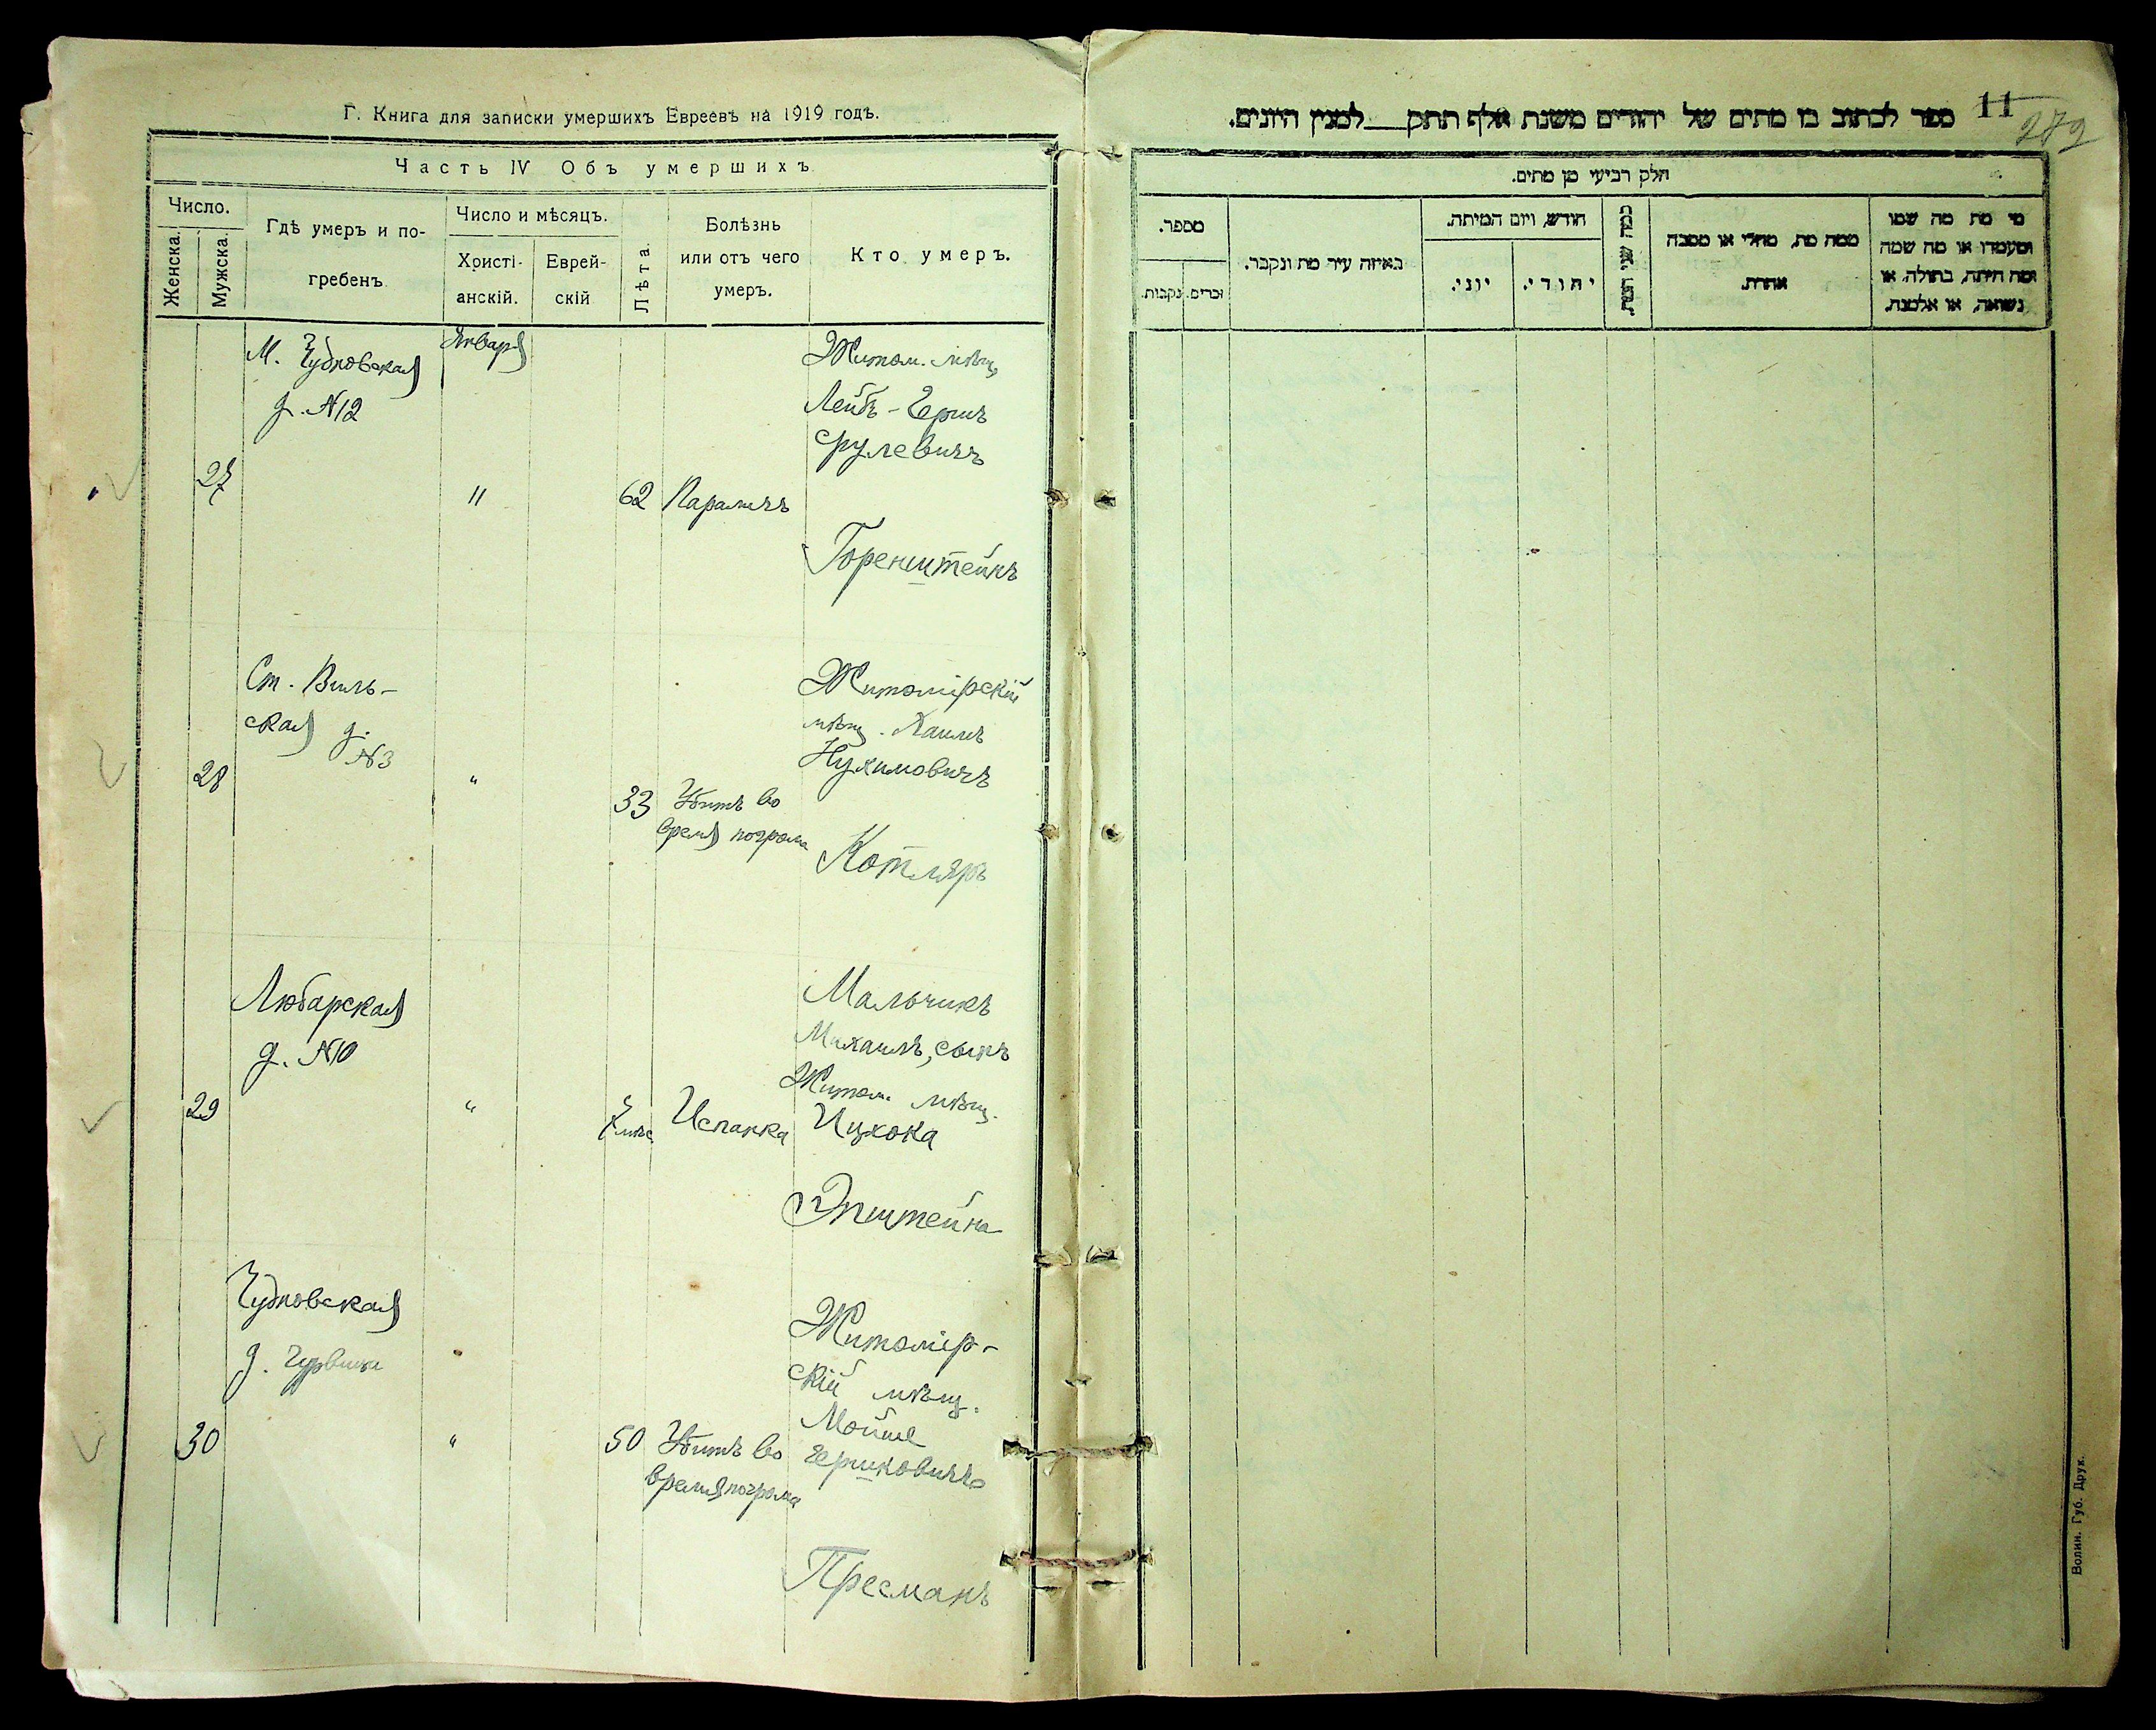 Г. Книга для записки умершихъ Евреевъ на 1919 годъ.
Часть IV Объ умершихъ
Число.
Женска.
Мужска.
Гдѣ умеръ и по-
гребенъ
Число и мѣсяцъ.
Христі-
анскій.
Еврей-
скій
Лѣта
Болѣзнь
или отъ чего
умеръ.
Кто умеръ.
27
М. Чудновская
д. №12
Января
11
62
Параличъ
Житом. мѣщ.
Лейбъ-Герш
Срулевичъ
Горенштейнъ
28
Ст. Виль-
ская д.
№3
"
33
Убитъ во
время погрома
Житомірскій
мѣщ. Хаимъ
Нухимовичъ
Котляръ
29
Любарская
д. №10
"
7 мѣс.
Испанка
Мальчикъ
Михаилъ, сынъ
Житом. мѣщ.
Ицхока
Эпштейна
30
Чудновская
д. Гурвица
"
50
Убитъ во
время погрома
Житомір-
скій мѣщ.
Мойше
Гершковичъ
Пресманъ
11
282
ספר לכתוב בו מתים של יהודים משנת אלף תתק___למנין היונים.
חלק רביעי מן מתים.
מספר.
זכרים.
נקבות.
באיזה עיר מת ונקבר.
חודש, ויום המיתה.
יוני.
יהודי.
כמה שני חייו.
ממה מת, מחלי או מסבה
אחרת.
מי מת מה שמו
ומעמדו או מה שמה
ומה היתה, בתולה, או
נשואה, או אלמנה.
Волин. Губ. Друк.